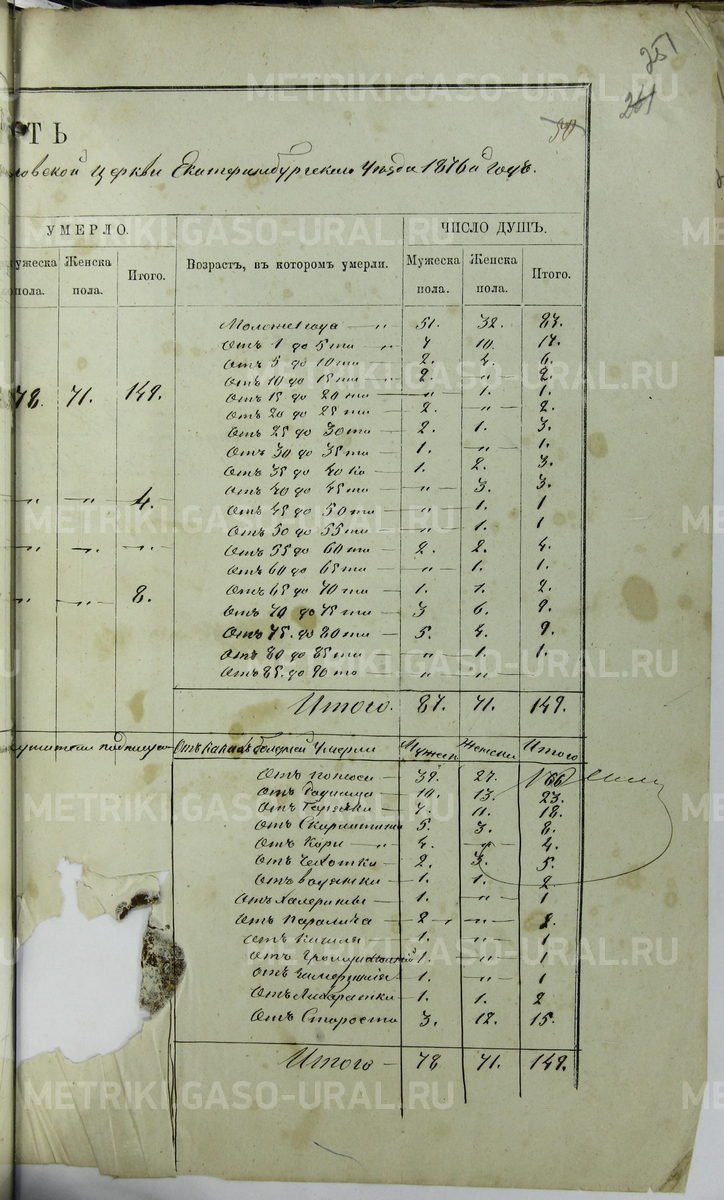 251
261
50
ТЬ
ловской церкви Екатеринбургскаго Уѣзда 1876й годъ.
УМЕРЛО. ЧИСЛО ДУШЪ.
Мужеска пола. Женска пола. Итого. Возрастъ, въ котором умерли. Мужеска пола. Женска пола. Итого.
Моложе года — „ 51. 32. 83.
Отъ 1 до 5ти — „ 7 10. 17.
Отъ 5 до 10ти 2. 4. 6.
Отъ 10 до 15ти — 2. „ 2.
78. 71. 149. Отъ 15 до 20ти — „ 1. 1.
Отъ 20 до 25ти 2. „ 2.
Отъ 25 до 30ти — 2. 1. 3.
Отъ 30 до 35ти — 1. „ 1.
Отъ 35 до 40ка — 1. 2. 3.
Отъ 40 до 45ти — „ 3. 3.
„ „ 4. Отъ 45 до 50ти — „ 1. 1
Отъ 50 до 55ти — „ 1. 1
„ „ „ Отъ 55 до 60ти — 2. 2. 4.
Отъ 60 до 65ти — „ 1. 1.
„ „ 8. Отъ 65 до 70ти — 1. 1. 2.
Отъ 70 до 75ти — 3 6. 9.
Отъ 75. до 80ти — 5. 4. 9.
Отъ 80 до 85ти — „ 1. 1.
Отъ 85. до 90то — „ „
Итого. 87. 71. 149.
Отъ какихъ болезней Умерли Мужеск Женски Итого
Отъ поноса — 39. 27. 66
Отъ Родимца — 10. 13. 23.
Отъ Горячки — 7. 11. 18.
Отъ Скарлатины 5. 3. 8.
Отъ Кори „ 4. „ 4.
Отъ Чехотки — 2. 3. 5.
Отъ водянки — 1. 1. 2.
Отъ Халерины — 1. „ 1
Отъ Паралича — 2 „ 2.
Отъ Кашля 1. „ 1
1. „ 1
Отъ Замерзанія 1. „ 1
Отъ Лихоратки — 1. 1. 2
Отъ Старости 3. 12. 15.
Итого — 78 71. 149.
METRIKI.GASO-URAL.RU